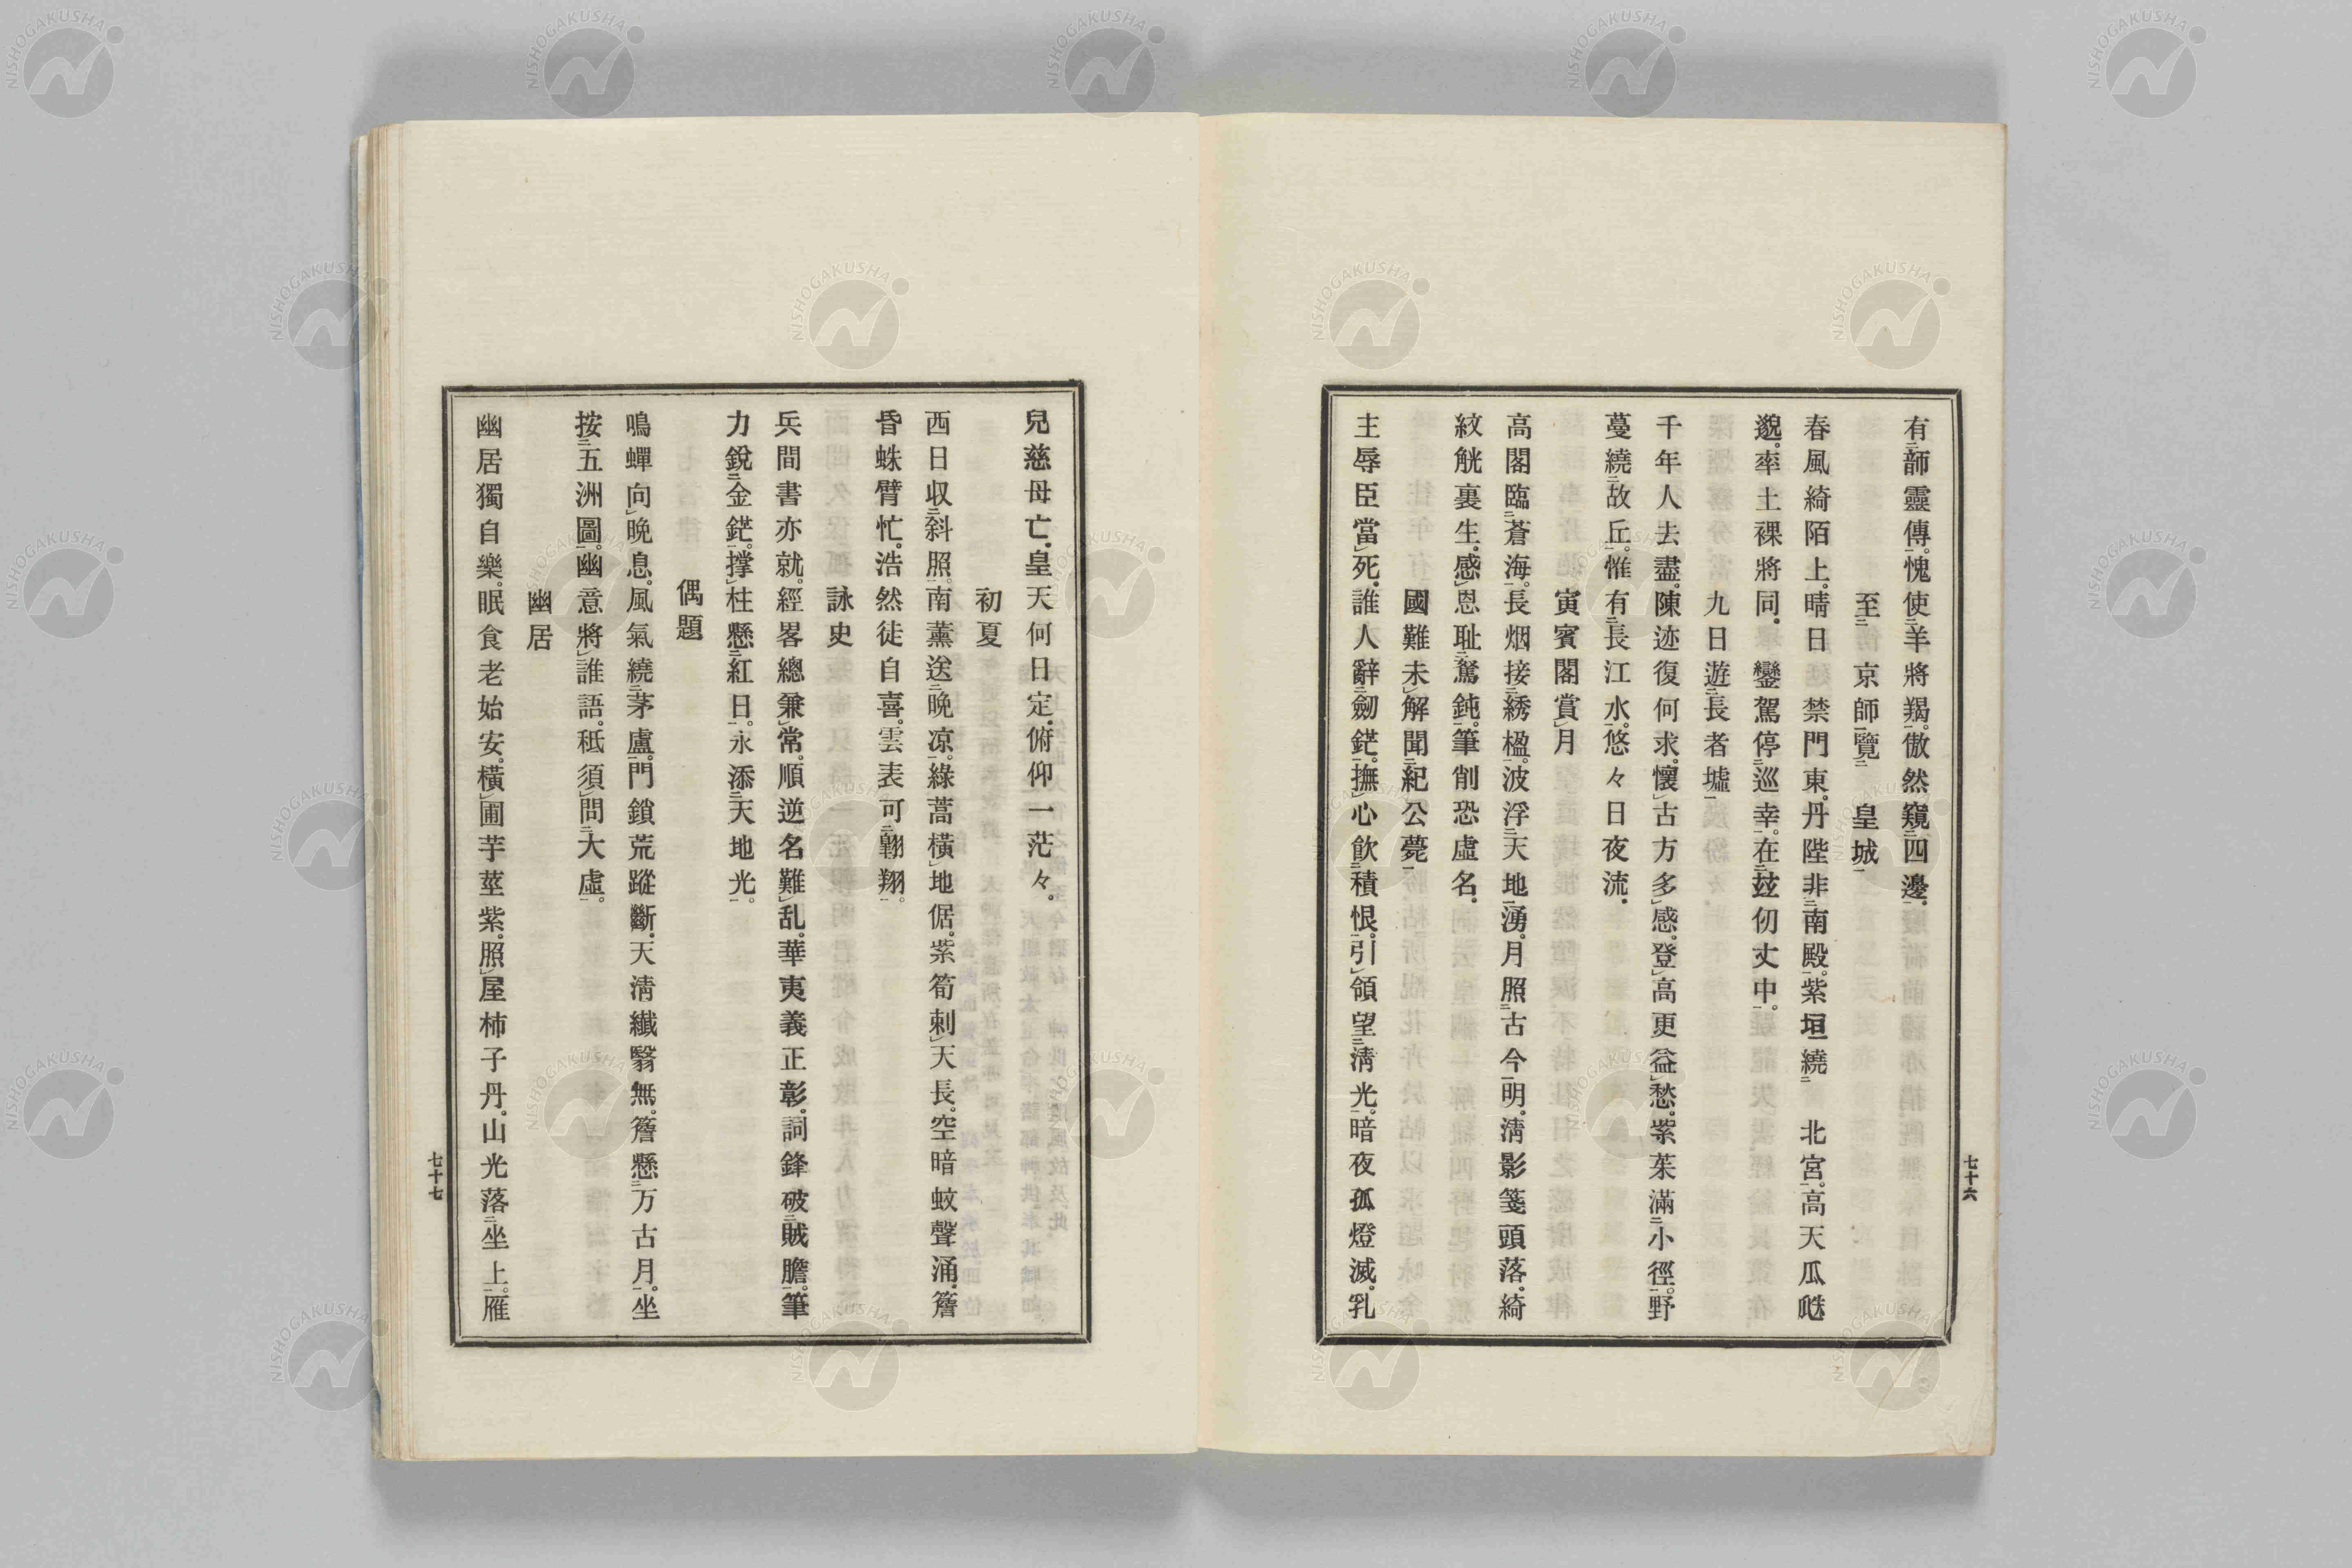 有師靈傳。愧使羊將羯。傲然窺四邊。
至 京師覽 皇城
春風綺陌上。晴日禁門東。丹陛非南殿。紫垣繞 北宮。高天瓜瓞
邈。率土裸將同。鑾駕停巡幸。在玆仞丈中。
九日遊長者墟
千年人去盡。陳迹復何求。懷古方多感。登高更益愁。紫茱滿小徑。野
蔓繞故丘。惟有長江水。悠々日夜流。
寅賓閣賞月
高閣臨蒼海。長烟接綉楹。波浮天地湧。月照古今明。淸影箋頭落。綺
紋觥裏生。感恩耻駑鈍。筆削恐虛名。
國難未解聞紀公薨
主辱臣當死。誰人辭劒鋩。撫心飮積恨。引領望淸光。暗夜孤燈滅。乳
七十六
兒慈母亡。皇天何日定。俯仰一茫々。
初夏
西日収斜照。南薰送晩凉。綠蒿橫地倨。紫筍刺天長。空暗蚊聲涌。簷
昏蛛臂忙。浩然徒自喜。雲表可翺翔。
詠史
兵間書亦就。經畧總兼常。順逆名難乱。華夷義正彰。詞鋒破賊膽。筆
力銳金鋩。撑柱懸紅日。永添天地光。
偶題
鳴蟬向晩息。風氣繞茅盧。門鎖荒蹤斷。天淸纖翳無。簷懸万古月。坐
按五洲圖。幽意將誰語。秪須問大虛。
幽居
幽居獨自樂。眠食老始安。橫圃芋莖紫。照屋柿子丹。山光落坐上。雁
七十七
NISHOGAKUSHA